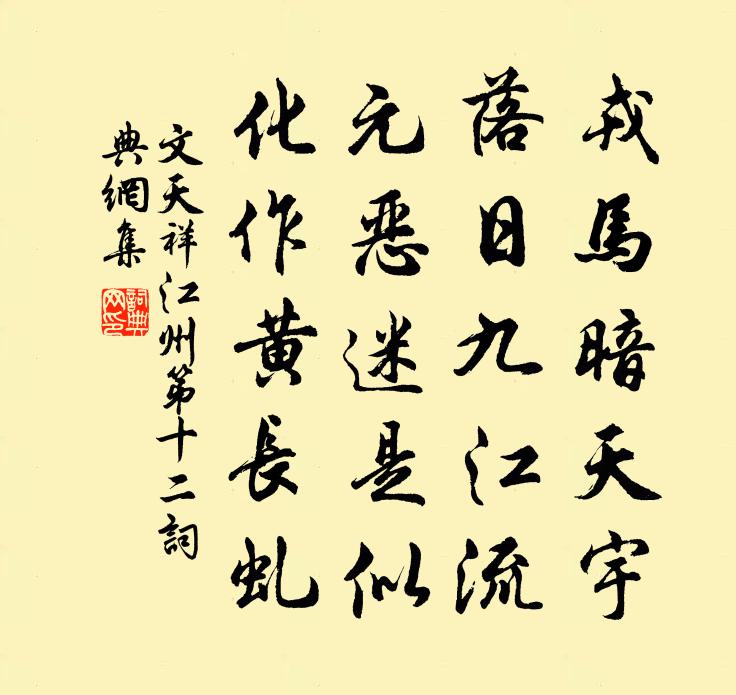 戎馬暗天宇
落日九江流
元惡迷是似
化作黄長虬
文天祥江州第十二詞
典網集
詞典網印